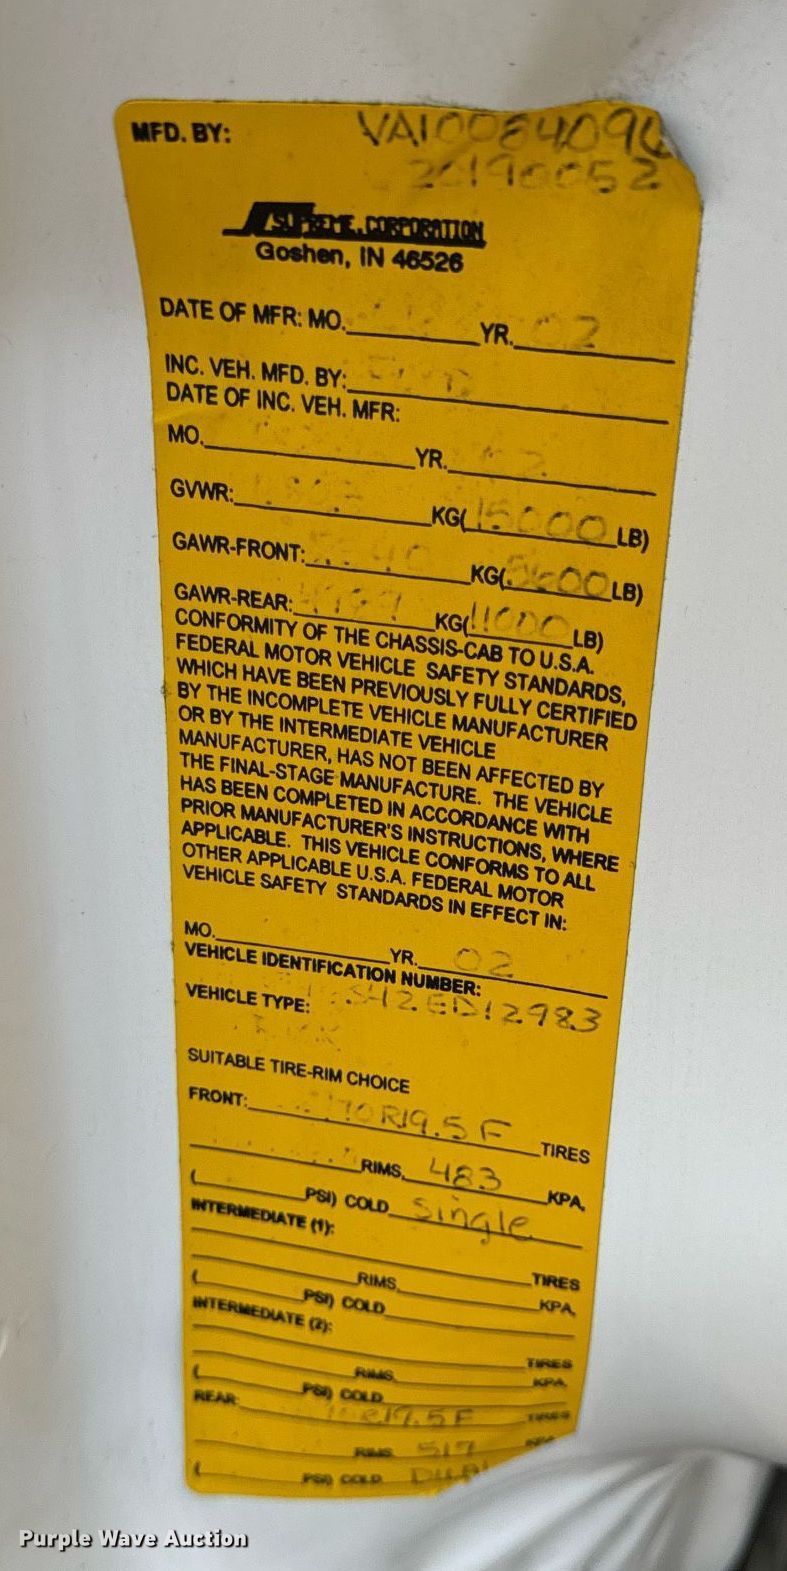 MFD. BY: VA10084090
20190052
SUPREME CORPORATION
Goshen, IN 46526
DATE OF MFR: MO. YR. 02
INC. VEH. MFD. BY:
DATE OF INC. VEH. MFR:
MO. YR.
GVWR: KG( 15000 LB)
GAWR-FRONT: KG( 5600 LB)
GAWR-REAR: 4999 KG( 11000 LB)
CONFORMITY OF THE CHASSIS-CAB TO U.S.A.
FEDERAL MOTOR VEHICLE SAFETY STANDARDS,
WHICH HAVE BEEN PREVIOUSLY FULLY CERTIFIED
BY THE INCOMPLETE VEHICLE MANUFACTURER
OR BY THE INTERMEDIATE VEHICLE
MANUFACTURER, HAS NOT BEEN AFFECTED BY
THE FINAL-STAGE MANUFACTURE. THE VEHICLE
HAS BEEN COMPLETED IN ACCORDANCE WITH
PRIOR MANUFACTURER'S INSTRUCTIONS, WHERE
APPLICABLE. THIS VEHICLE CONFORMS TO ALL
OTHER APPLICABLE U.S.A. FEDERAL MOTOR
VEHICLE SAFETY STANDARDS IN EFFECT IN:
MO. YR. 02
VEHICLE IDENTIFICATION NUMBER:
S42ED12983
VEHICLE TYPE:
SUITABLE TIRE-RIM CHOICE
FRONT: 70R19.5 F TIRES
RIMS, 483 KPA,
( PSI) COLD single
INTERMEDIATE (1):
TIRES
RIMS, KPA,
( PSI) COLD
INTERMEDIATE (2):
TIRES
RIMS, KPA,
( PSI) COLD
REAR: R19.5 F TIRES
RIMS 517 KPA
( PSI) COLD
Purple Wave Auction